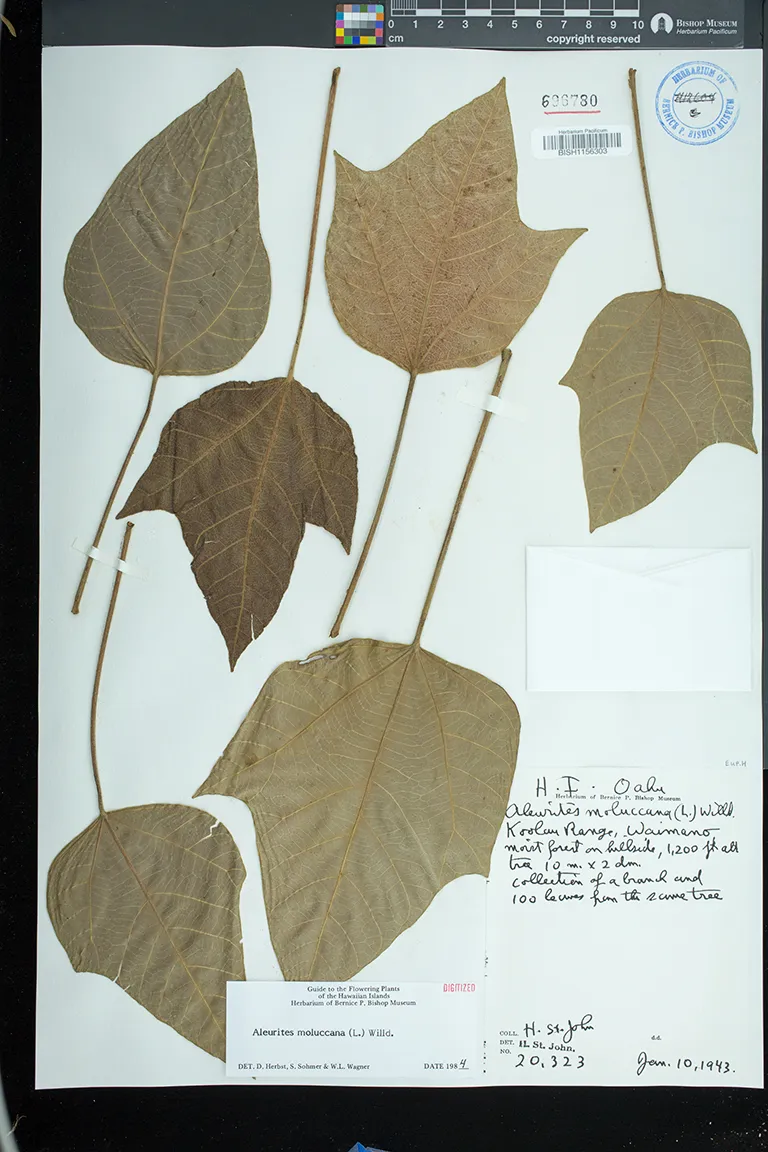 0 1 2 3 4 5 6 7 8 9 10
cm
copyright reserved
BISHOP MUSEUM
Herbarium Pacificum
696780
Herbarium Pacificum
BISH1156303
HERBARIUM OF
BERNICE P. BISHOP MUSEUM
EUPH
H. I. Oahu
Herbarium of Bernice P. Bishop Museum
Aleurites moluccana (L.) Willd.
Koolau Range, Waimano,
moist forest on hillside, 1,200 ft alt
tree 10 m. x 2 dm.
collection of a branch and
100 leaves from the same tree
COLL. H. St. John
DET. H. St. John.
NO. 20,323
Jan. 10, 1943.
Guide to the Flowering Plants
of the Hawaiian Islands
Herbarium of Bernice P. Bishop Museum
DIGITIZED
Aleurites moluccana (L.) Willd.
DET. D. Herbst, S. Sohmer & W.L. Wagner DATE 1984